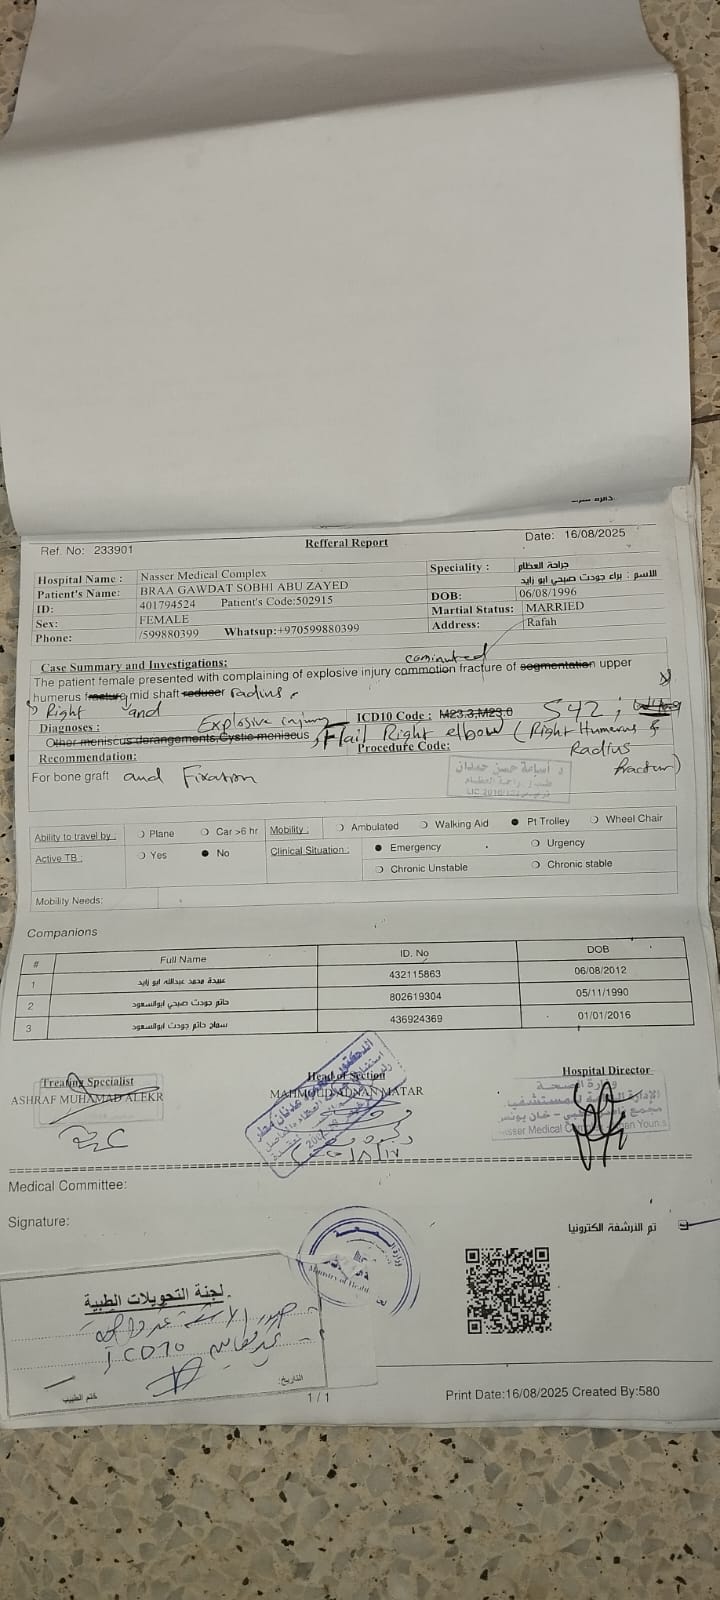 Refferal Report
Ref. No: 233901
Date: 16/08/2025
Hospital Name : Nasser Medical Complex
Speciality : جراحة العظام
Patient's Name: BRAA GAWDAT SOBHI ABU ZAYED
الاسم : براء جودت صبحي ابو زايد
ID: 401794524 Patient's Code:502915
DOB: 06/08/1996
Sex: FEMALE
Martial Status: MARRIED
Phone: /599880399 Whatsup:+970599880399
Address: Rafah
Case Summary and Investigations:
cominuted
The patient female presented with complaining of explosive injury commotion fracture of segmentation upper
humerus fracture mid shaft reducer radius
Right and
Diagnoses: Explosive injury
ICD10 Code : M23.3,M23.0 S42 ;
Other meniscus derangements,Cystic meniscus , Flail Right elbow (Right Humerus &
Radius
fracture)
Recommendation:
Procedure Code:
For bone graft and Fixation
د. أسامة حسن حمدان
Ability to travel by : Plane Car >6 hr
Mobility : Ambulated Walking Aid Pt Trolley Wheel Chair
Active TB : Yes No
Clinical Situation : Emergency Urgency
Chronic Unstable Chronic stable
Mobility Needs:
Companions
# Full Name ID. No DOB
1 عبيدة محمد عبدالله ابو زايد 432115863 06/08/2012
2 حاتم جودت صبحي ابوالسعود 802619304 05/11/1990
3 سماح حاتم جودت ابوالسعود 436924369 01/01/2016
Treating Specialist
ASHRAF MUHAMAD ALEKR
Head of Section
MAHMOUD ADNAN MATAR
Hospital Director
وزارة الصحة
Medical Committee:
Signature:
تم الارشفة الكترونيا
Ministry of Health
لجنة التحويلات الطبية
ICD10
التاريخ:
ختم الطبيب
1 / 1
Print Date:16/08/2025 Created By:580